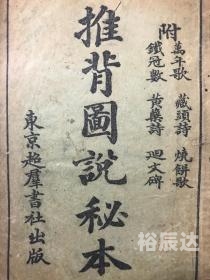 附
萬年歌 藏頭詩 燒餅歌
鐵冠數 黃蘗詩 迴文碑
推背圖說秘本
東京超羣書社出版
裕辰达